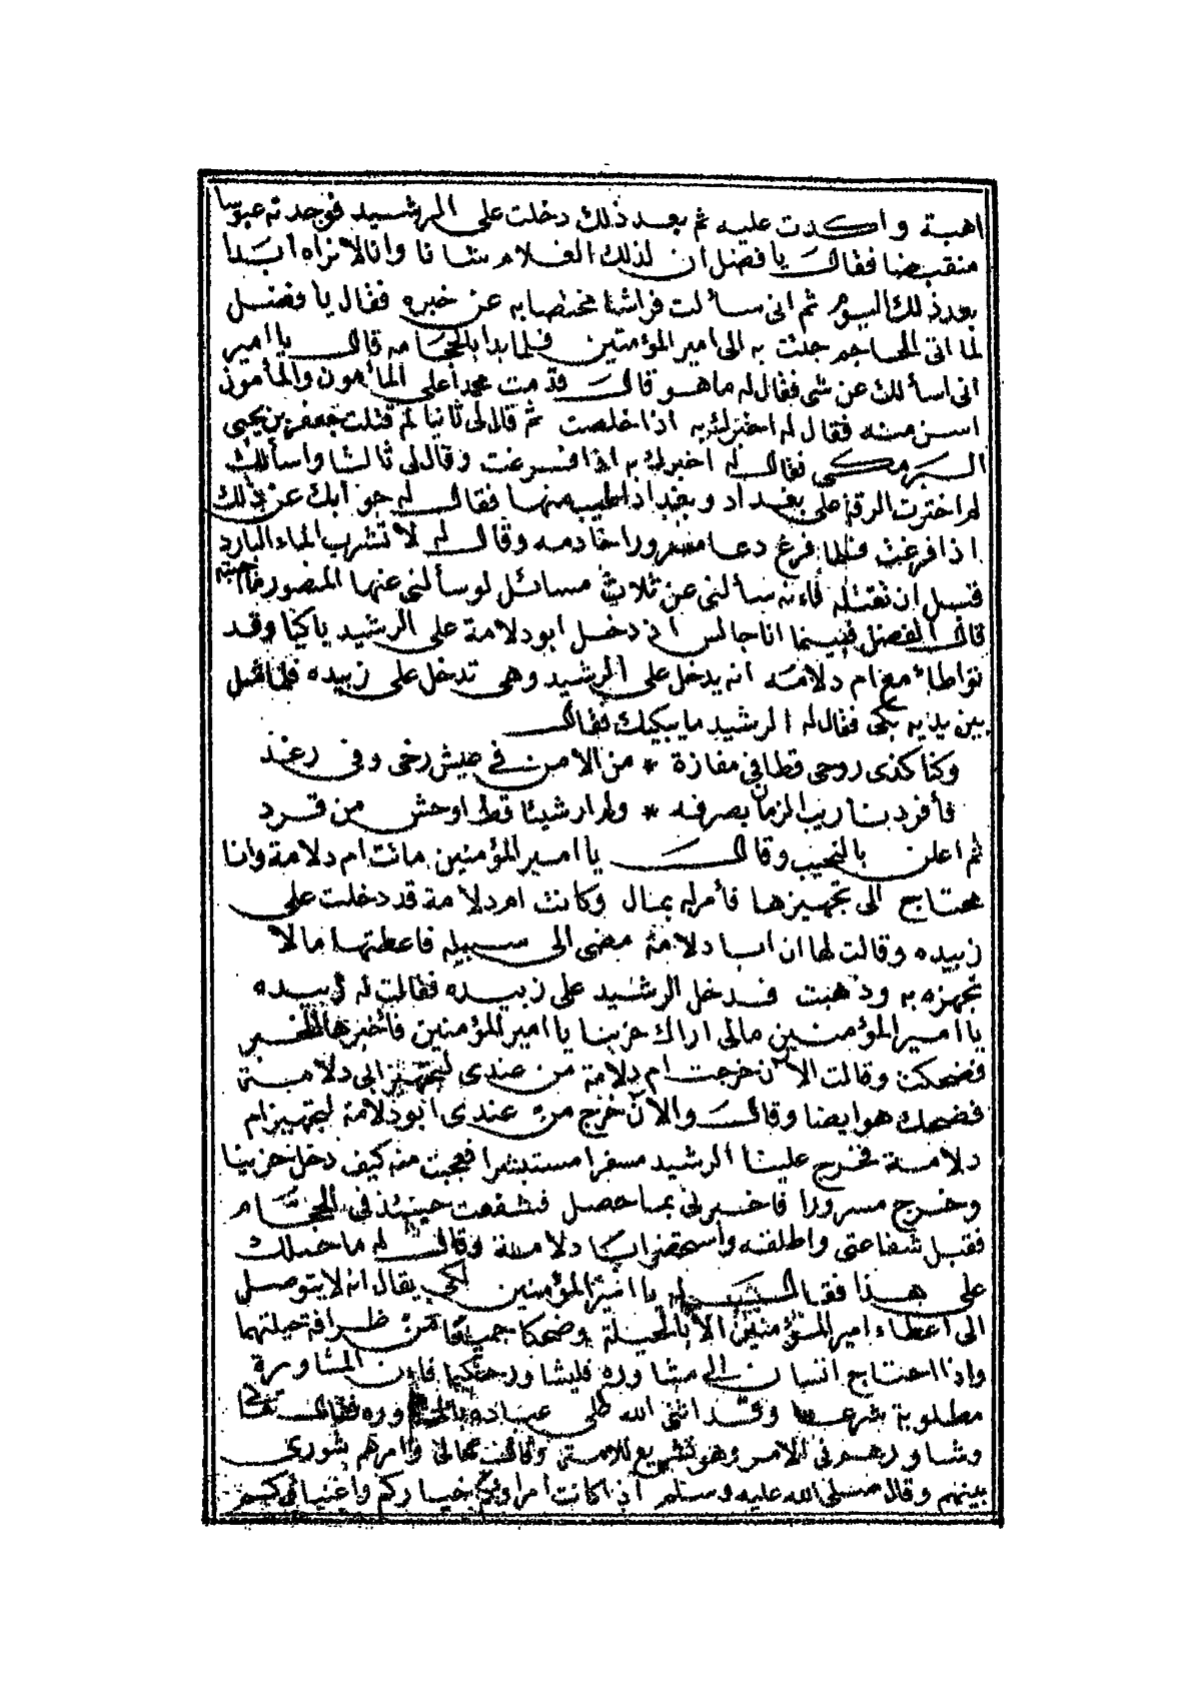 اهبة واكدت عليه ثم بعد ذلك دخلت على الرشيد فوجدته عبوسا
منقبضا فقال يا فضل ان لذلك الغلام شانا وانا لا نراه ابدا
بعد ذلك اليوم ثم انى سألت فراشا مختصا به عن خبره فقال يا فضل
لما اتى الحاجم جلت به الى امير المؤمنين فلما بدا بالحجامه قال يا امير
انى اسألك عن شى فقال له ما هو قال قدمت محمدا على المأمون والمأمون
اسن منه فقال له اخبرك به اذا خلصت ثم قال لى ثانيا لم قتلت جعفر بن يحيى
البرمكى فقال له اخبرك به اذا فرغت وقال لى ثالثا واسألك
لم اخترت الرقة على بغداد وبغداد اطيب منها فقال له جوابك عن ذلك
اذا فرغت فلما فرغ دعا مسرورا خادمه وقال له لا تشرب الماء البارد
قبل ان تقتله فاءنه سألنى عن ثلاث مسائل لو سألنى عنها المنصور ما اجبته
قال الفضل فبينما انا جالس اذ دخل ابو دلامة على الرشيد باكيا وقد
تواطاء مع ام دلامه انه يدخل على الرشيد وهى تدخل على زبيده فلما مثل
بين يديه بكى فقال له الرشيد ما يبكيك فقال
وكنا كذى روحى قطا فى مفازة * من الامن فى عيش رخى وفى رغد
فأفردنا ريب الزمان بصرفه * ولم ار شيئا قط اوحش من فرد
ثم اعلن بالنحيب وقال يا امير المؤمنين ماتت ام دلامة وانا
محتاج الى تجهيزها فأمر له بمال وكانت ام دلامة قد دخلت على
زبيده وقالت لها ان ابا دلامة مضى الى سبيله فاعطتها مالا
تجهزه به وذهبت فدخل الرشيد على زبيده فقالت له زبيده
يا امير المؤمنين مالى اراك حزينا يا امير المؤمنين فأخبرها الخبر
فضحكت وقالت الآن خرجت ام دلامة من عندى لتجهيز ابى دلامة
فضحك هو ايضا وقال والآن خرج من عندى ابو دلامة لتجهيز ام
دلامة فخرج علينا الرشيد مسفرا مستبشرا فعجبت منه كيف دخل حزينا
وخرج مسرورا فاخبرنى بما حصل فشفعت حينئذ فى الحجام
فقبل شفاعتى واطلقه واستحضر ابا دلامة وقال له ما حملك
على هذا فقال له يا امير المؤمنين لكى يقال انه لا يتوصل
الى اعطاء امير المؤمنين الا بالحيلة وضحكا جميعا من ظرافة حيلتهما
واذا احتاج انسان الى مشاوره فليشاور حكيما فان المشاورة
مطلوبة شرعا وقد اثنى الله على عباده وره فقال تعالى
وشاورهم فى الامر وهو تشريع للامة وقال تعالى وامرهم شورى
بينهم وقال صلى الله عليه وسلم اذا كانت امراؤكم خياركم واغنياؤكم